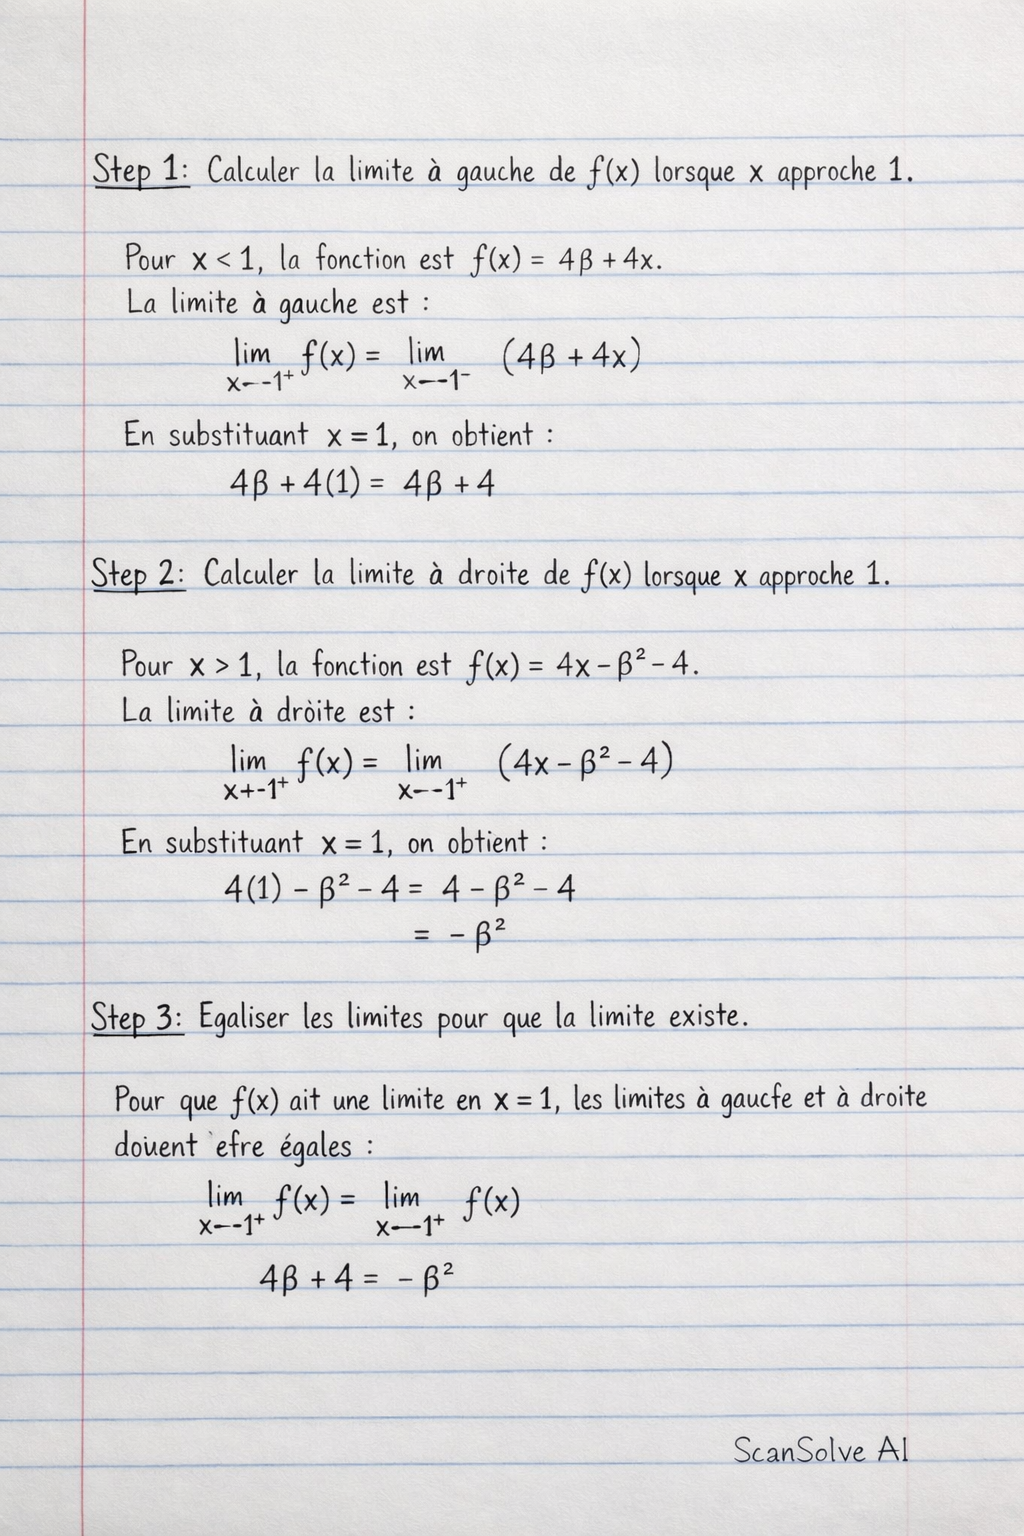 Step 1: Calculer la limite à gauche de f(x) lorsque x approche 1.
Pour x < 1, la fonction est f(x) = 4β + 4x.
La limite à gauche est :
lim f(x) = lim (4β + 4x)
x—-1⁺ x—-1⁻
En substituant x = 1, on obtient :
4β + 4(1) = 4β + 4
Step 2: Calculer la limite à droite de f(x) lorsque x approche 1.
Pour x > 1, la fonction est f(x) = 4x – β² – 4.
La limite à dròite est :
lim f(x) = lim (4x – β² – 4)
x+-1⁺ x—-1⁺
En substituant x = 1, on obtient :
4(1) – β² – 4 = 4 – β² – 4
= – β²
Step 3: Egaliser les limites pour que la limite existe.
Pour que f(x) ait une limite en x = 1, les limites à gaucfe et à droite
doiuent `efre égales :
lim f(x) = lim f(x)
x—-1⁺ x—-1⁺
4β + 4 = – β²
ScanSolve AI